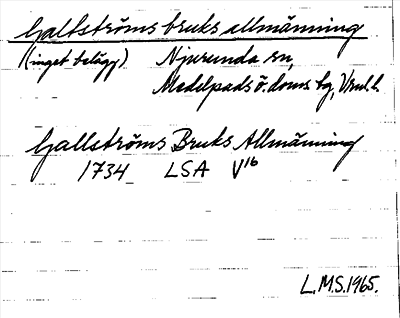 Galtströms bruks allmänning
(inget belägg) Njurunda sn,
Medelpads ö. doms. tg, Vrnl. l.
Gallströms Bruks Allmänning
1734 LSA V16
L.M.S. 1965.